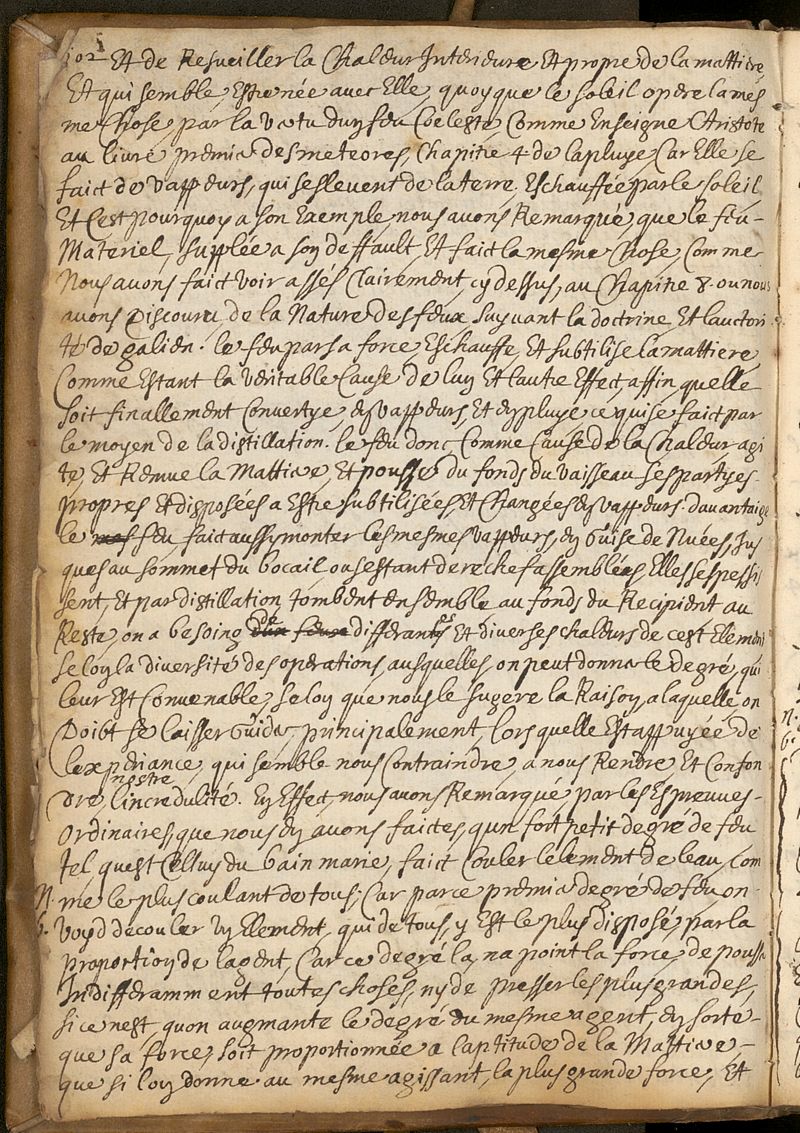 102 Et de Resueiller la Chaleur Interieure Et propre de la mattiere
Et qui semble Estre née auec Elle, quoy que le soleil opere la mes
me Chose par la vertu d'un feu Coeleste, Comme Enseigne Aristote
au liure premier des meteores, Chapitre 4 de la pluye, Car Elle se
faict de vappeurs, qui seslevent de la terre. Eschauffée par le soleil
Et Cest pourquoy a son Exemple, nous auons Remarqué, que le feu-
Materiel, supplée a son deffault, Et faict la mesme Chose, Comme
Nous auons faict voir assés Clairement, cy dessus, au Chapitre 8. ou nous
auons Discouru, de la Nature des feux suyuant la doctrine, Et lauctori
té de galien. le feu par sa force Eschauffe, Et subtilise la mattiere,
Comme Estant la veritable Cause de luy Et lautre Effect, affin quelle
soit finallement Conuertye, en vappeurs, Et en pluye ce qui se faict par
le moyen de la distillation. le feu donc Comme Cause de la Chaleur agi
te, Et Remue la Mattiere, Et pousse du fonds du vaisseau ses partyes-
propres Et disposées a Estre subtilisées Et Changées en vappeurs. dauantaige
le feu faict aussy monter les mesmes vappeurs, en Guise de Nuées, Jus
ques au sommet du bocail ou sestant derechef assemblées Elles sespessis
sent, Et par distillation tombent ensemble au fonds du Recipient au
Reste, on a besoing de differants Et diverses chaleurs de cest Element
seloy la diversité des operations, ausquelles on peut donner le degré, qui
leur Est Convenable, seloy que nous le sugere la Raison, a laquelle on
Doibt se laisser Guider, principalement, lors quelle Est appuyée de
lexperiance, qui semble nous Contraindre a nous Rendre, Et Confon
dre nostre l'incredulité. En Effect, nous auons Remarqué, par les Espreuues-
Ordinaires, que nous en auons faictes, qun fort petit degré de feu
tel quest Celluy du bain marie, faict Couler lelement de leau, Com
N. me le plus coulant de tous; Car par ce premier degré de feu on-
6. voyd decouler un Ellement, qui de tous, y Est le plus disposé, par la
proportion de lagent, Car ce degré la, na point la force, de pousser
Indifferamment toutes choses, ny de presser les plus grandes,
si ce nest, quon augmante le degré du mesme agent, en sorte-
que sa force, soit proportionnée a laptitude de la Mattiere-
que si lon donne au mesme agissant, la plus grande force, Et